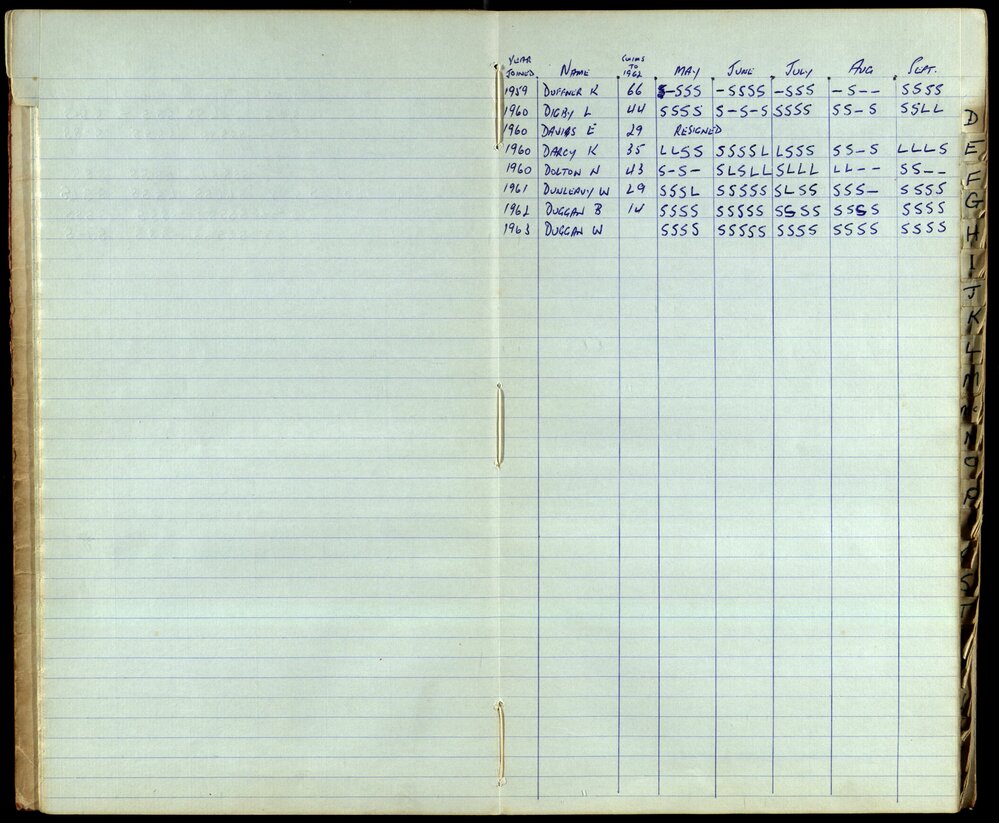 YEAR JOINED NAME SWIMS TO 1962 MAY JUNE JULY AUG SEPT.
1959 DUFFNER K 66 S-SSS -SSSS -SSS -S-- SSSS
1960 DIGBY L 44 SSSS S-S-S SSSS SS-S SSLL
1960 DAVIES E 29 RESIGNED
1960 DARCY K 35 LLSS SSSSL LSSS SS-S LLLS
1960 DOLTON N 43 S-S- SLSLL SLLL LL-- SS--
1961 DUNLEAVY W 29 SSSL SSSSS SLSS SSS- SSSS
1962 DUGGAN B 14 SSSS SSSSS SSSS SSSS SSSS
1963 DUGGAN W SSSS SSSSS SSSS SSSS SSSS
D
E
F
G
H
I
J
K
L
M
Mc
N
O
P
S
T